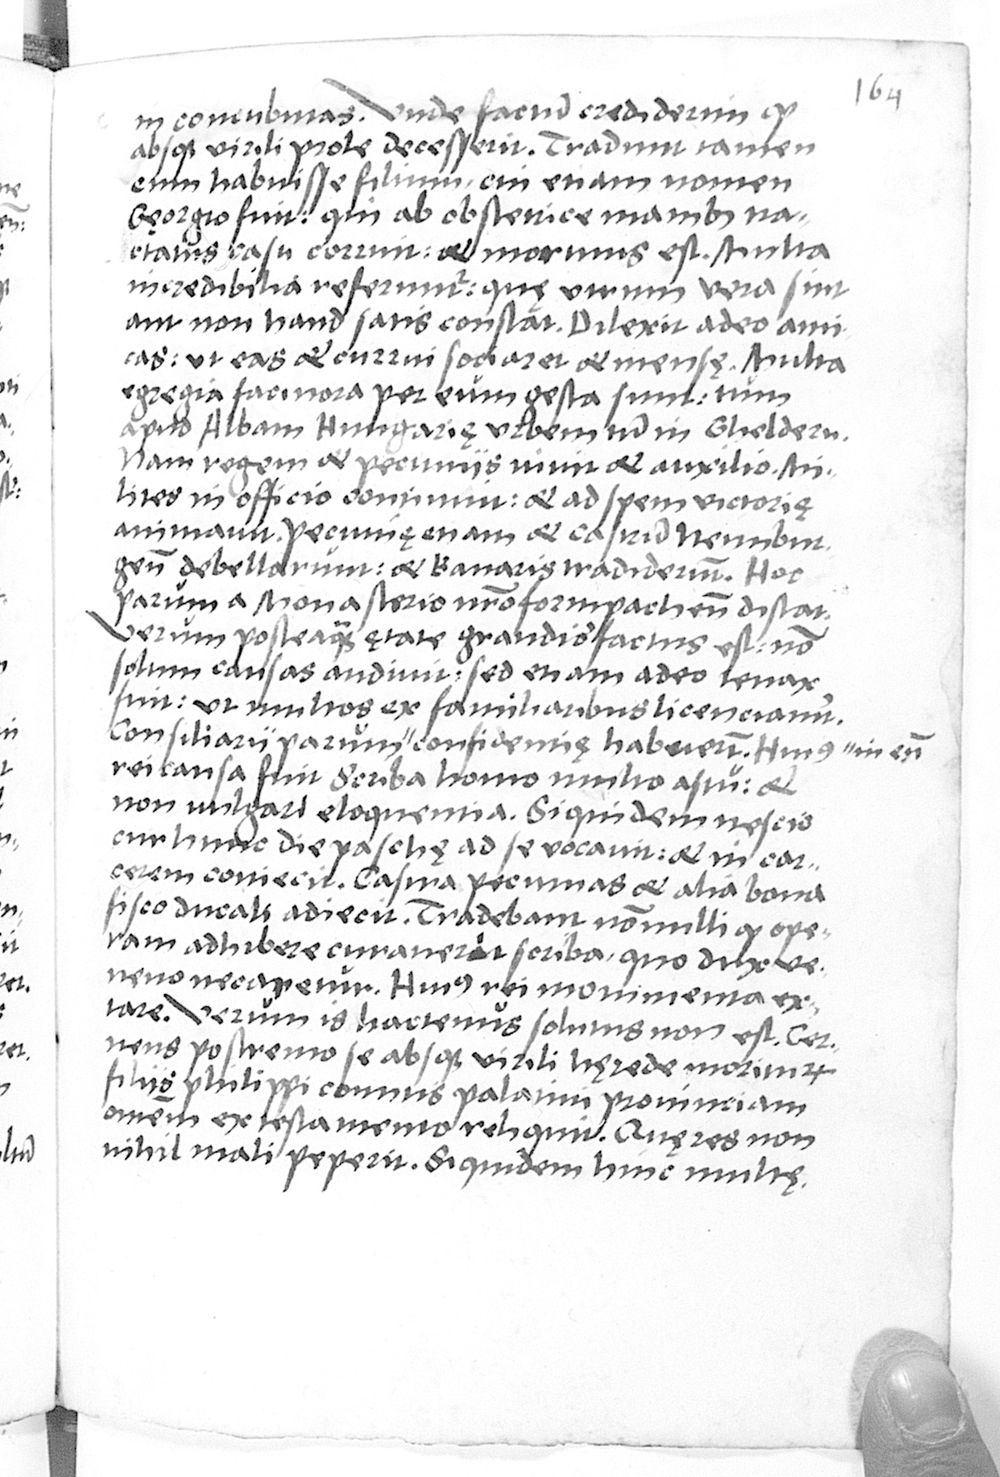 164
in concubinas. Vnde factū crediderim ꝙ
absqꝫ virili prole decesserit. Tradunt tamen
eum habuisse filium, cui etiam nomen
Gęorgio fuit: qui ab obstetrice manibꝫ na-
ctatus casu corruit: & mortuus est. Multa
incredibilia referunt᷑: quę vtrum vera sint
aut non haud satis constat. Dilexit adeo ami
cas: vt eas & currui sociaret & mensę. Multa
egregia facinora per eum gesta sunt: tum
apud Albam Hungarię vrbem tū in Gheldern.
Nam regem & pecuniis iuuit & auxilio. Mi-
lites in officio continuit: & ad spem victorię
animauit. Pecunię etiam & Castrū Neunbur.
geñ debellarunt: & Bauaris tradiderūt. Hoc
parum a Monasterio nr̄o formpacheñ distat.
Verum posteaqꝫ ętate grandior factus est: nō
solum causas audiuit: sed etiam adeo tenax
fuit: vt multos ex familiaribus licenciauit.
Consiliarii parum " confidentię habuerūt. Huiꝰ " in eū
rei causa fuit Scriba homo multo astu: &
non vulgari eloquentia. Siquidem nescio
cur hunc die paschę ad se vocauit: & in car-
cerem coniecit. Castra pecunias & alia bona
fisco ducali adiecit. Tradebant nōnulli ꝙ ope-
ram adhibere curauerit scriba, quo dux ve-
neno necaretur. Huiꝰ rei monimenta ex-
tare. Verum is hactenus solutus non est. Cer-
nens postremo se absqꝫ virili hęrede moriturū
filiis philippi comitis palatini prouinciam
omēm ex testamento reliquit. Quę res non
nihil mali peperit. Siquidem hinc multę